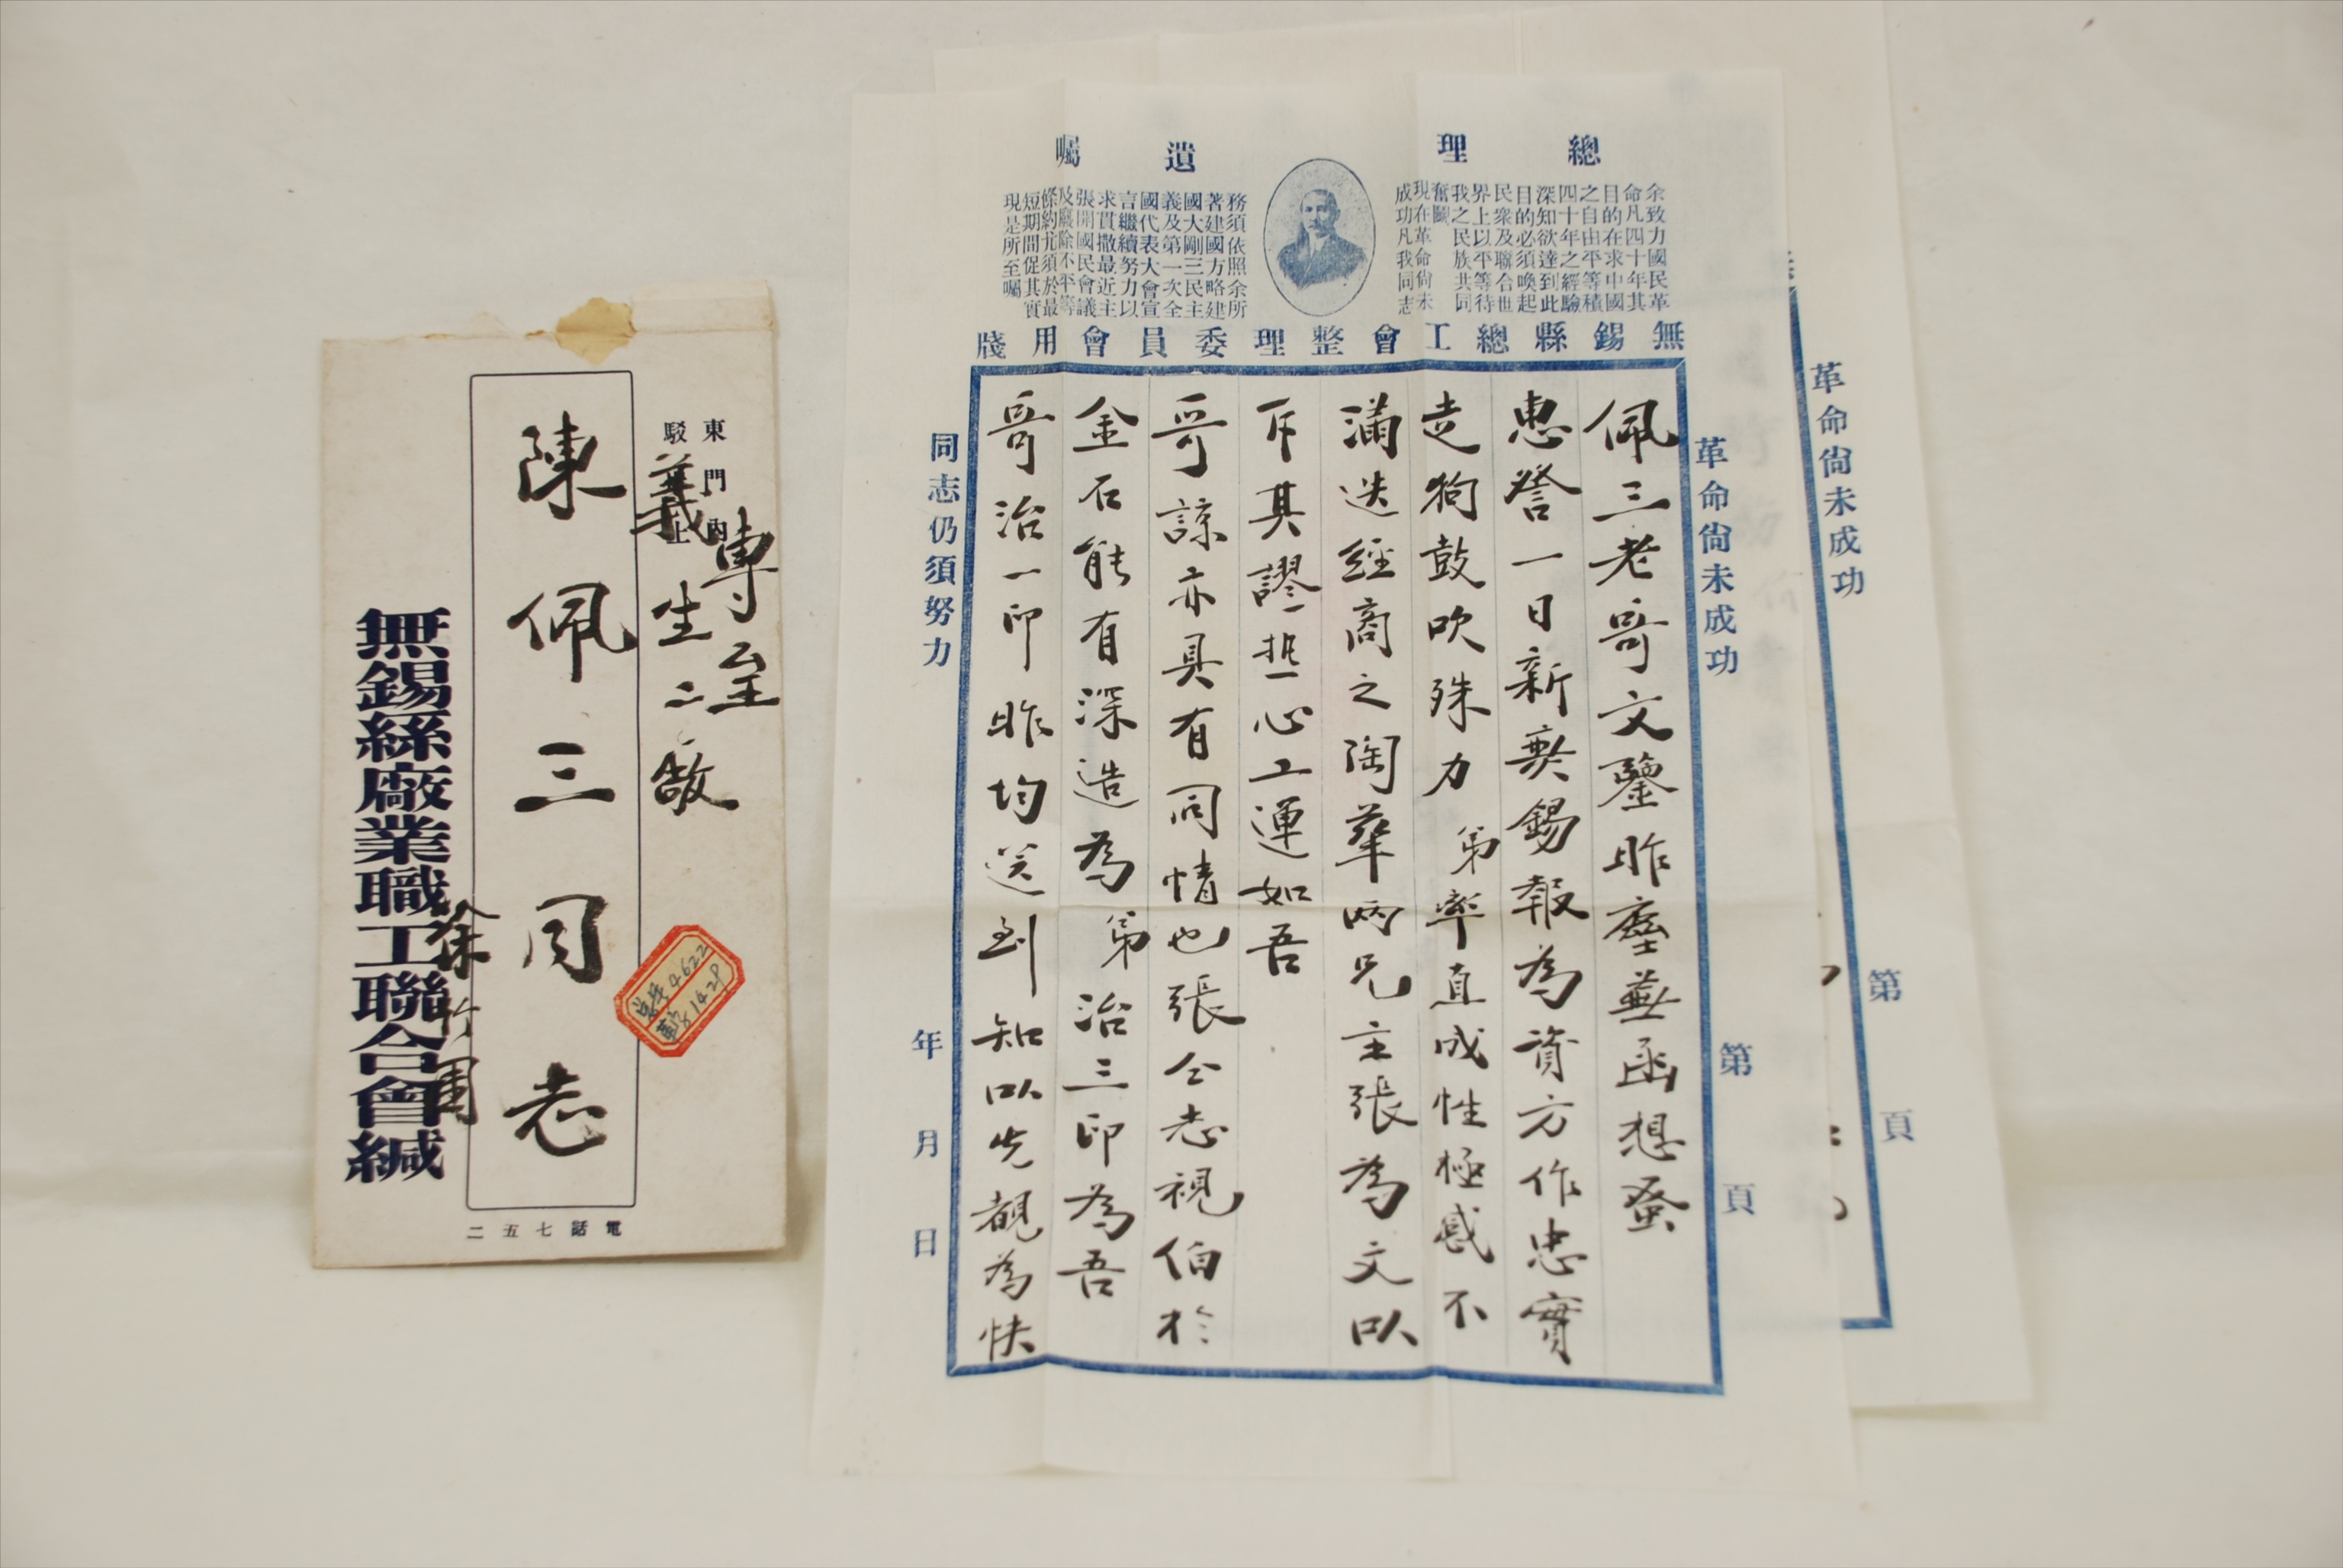 東門內
駁上
專至
義生二敝
陳佩三同志
無錫絲廠業職工聯合會緘
徐竹圃
電話七五二
總理遺囑
余致力國民革
命凡四十年其
目的在求中國
之自由平等積
四十年之經驗
深知欲達到此
目的必須喚起
民眾及聯合世
界上以平等待
我之民族共同
奮鬬
現在革命尚未
成功凡我同志
務須依照余所
著建國方略建
國大剛三民主
義及第一次全
國代表大會宣
言繼續努力以
求貫撒最近主
張開國民會議
及廢除不平等
條約尤須於最
短期間促其實
現是所至囑
無錫縣總工會整理委員會用牋
革命尚未成功
第 頁
佩三老哥文鑒昨塵蕪函想蚤
惠詧一日新無錫報為資方作忠實
走狗鼓吹殊力 弟率直成性極感不
滿迭經商之陶華兩兄主張為文以
斥其謬一抒心工運如吾
哥諒亦具有同情也張仝志視伯於
金石能有深造為 弟治三印為吾
哥治一印昨均送到知以先覩為快
同志仍須努力
年 月 日
革命尚未成功
第 頁